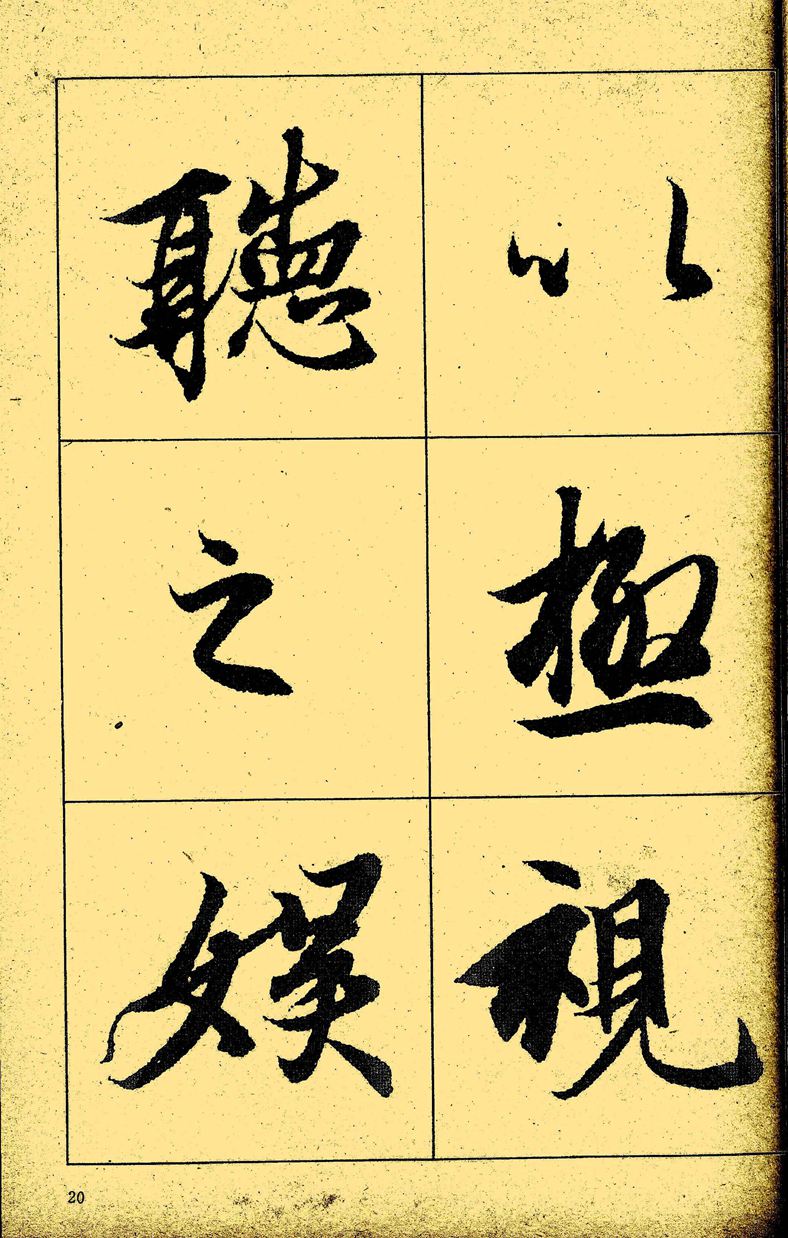 以極視
聽之娛
20